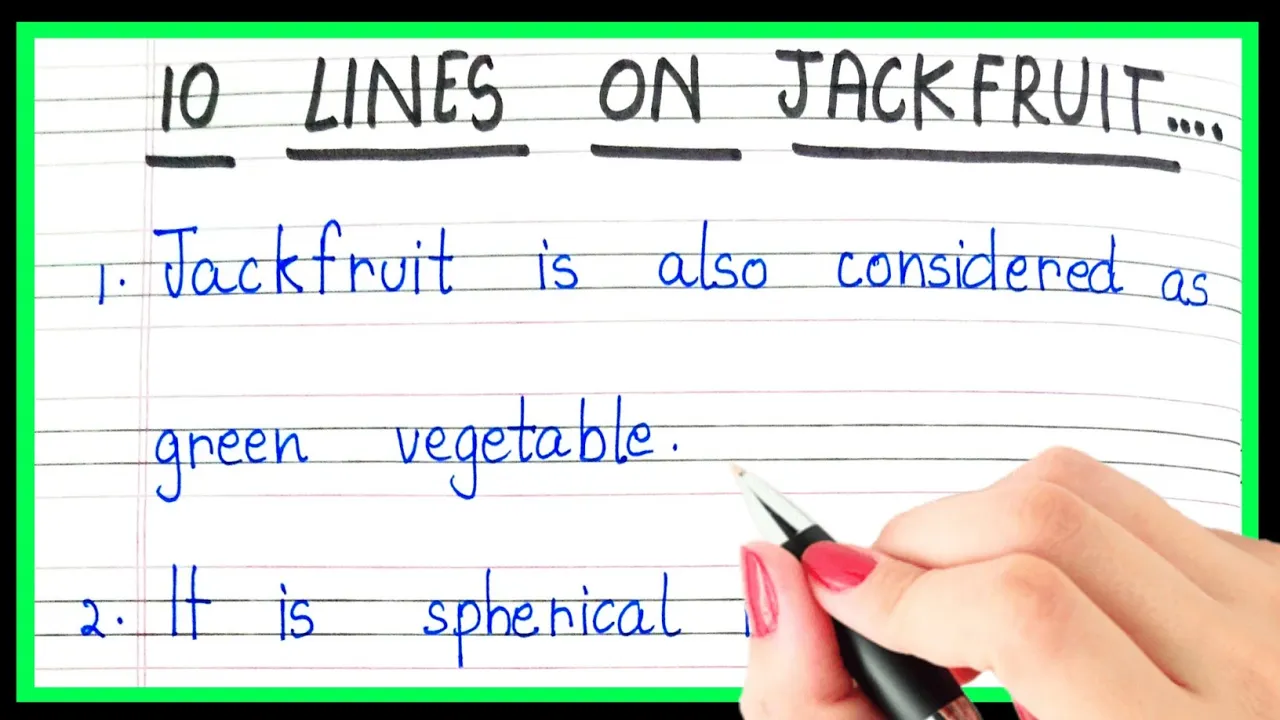 10 LINES ON JACKFRUIT....
1. Jackfruit is also considered as
green vegetable.
2. It is spherical